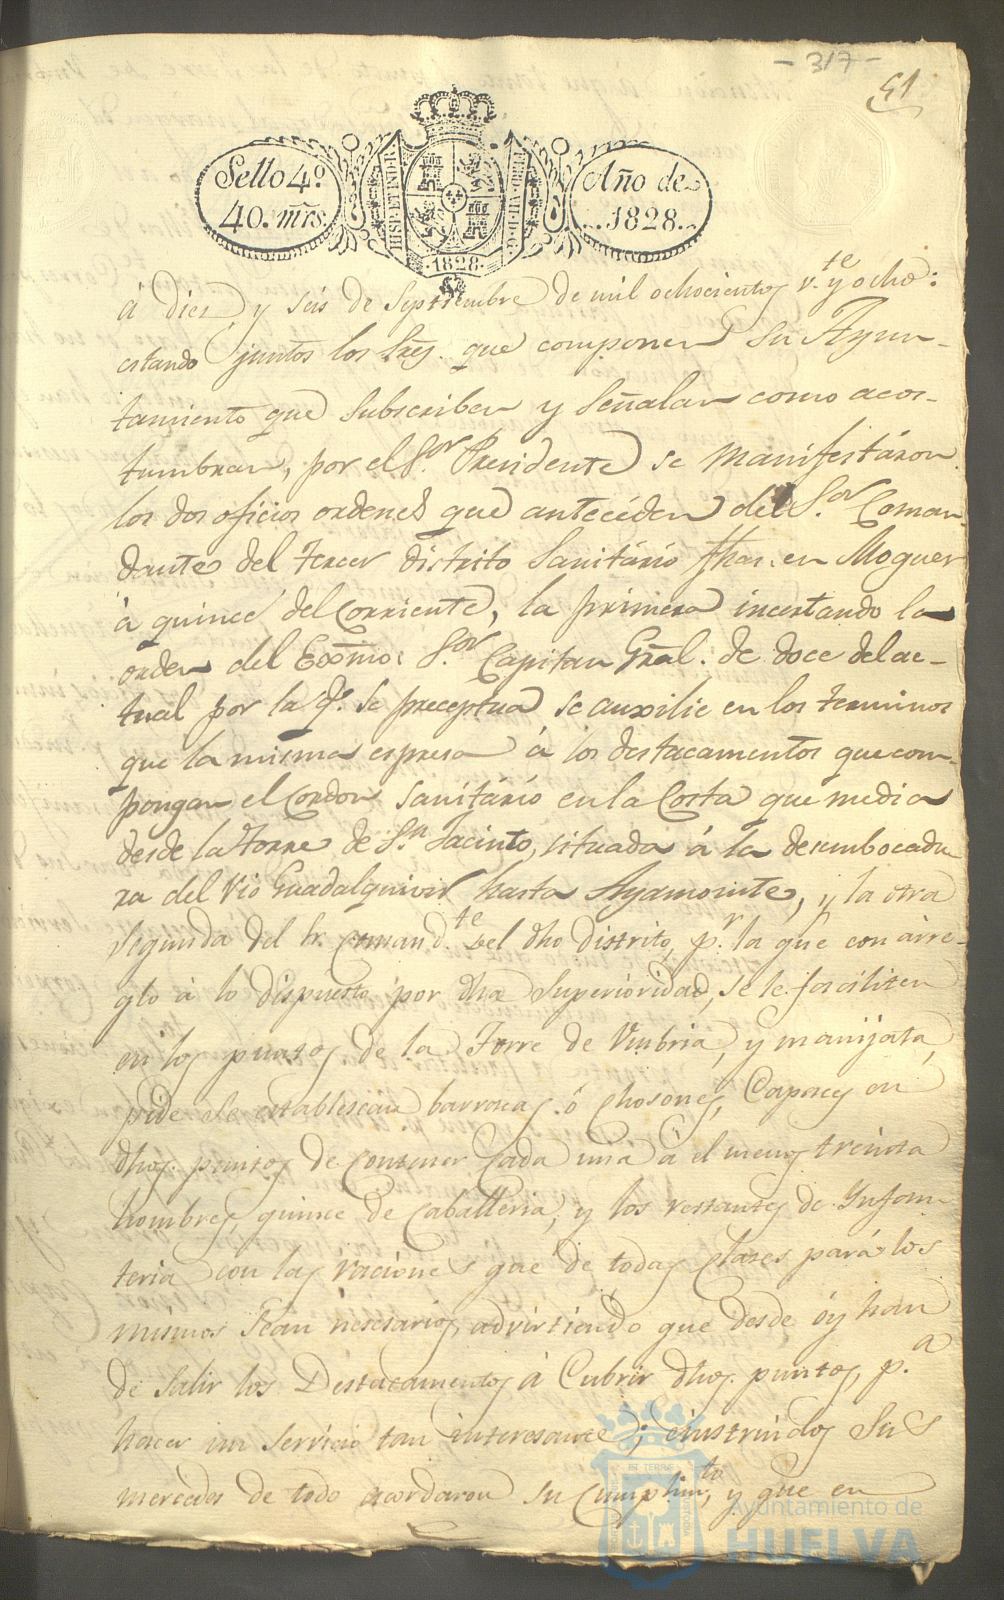 - 317 -
51
Sello 4º
40. mrs.
HISP. ET IND. R.
FERD. VII. D. G.
1828.
Año de
1828.
á diez y seis de Septiembre de mil ochocientos v.te y ocho:
estando juntos los Sres. que componen su Ayun-
tamiento que subscriben y señalan como acos-
tumbran, por el S.or Presidente se manifestáron
los dos oficios ordenes que antecéden del S.or Coman-
dante del tercer distrito Sanitário fhas. en Moguer
á quince del corriente, la primera incertando la
orden del Exmo. S.or Capitan Gral. de doce del ac-
tual por la q.e se preceptua se auxilie en los terminos
que la misma espresa á los destacamentos que com-
pongan el Cordon Sanitário en la Costa que media
desde la torre de S.n Jacinto, situada á la desembocadu
ra del rio Guadalquivir hasta Ayamonte, y la otra
segunda del Sr. Comand.te del dho distrito, p.r la que con arre-
glo á lo dispuesto por dha Superioridad, se le faciliten
en los puntos de la Torre de Umbria, y manijata,
pide se establescan barracas ó chosones, Capaces en
dhos. puntos de contener Cada una á el menos treinta
hombres, quince de Caballeria, y los restantes de Infan-
teria con las raciones que de todas clases pará los
mismos sean nesesarios, advirtiendo que desde óy han
de salir los Destacamentos á Cubrir dhos. puntos, p.a
hacer un servicio tan interesante; é instruidos Sus
mercedes de todo acordaron su Cumplim.to, y que en
Ayuntamiento de
HUELVA